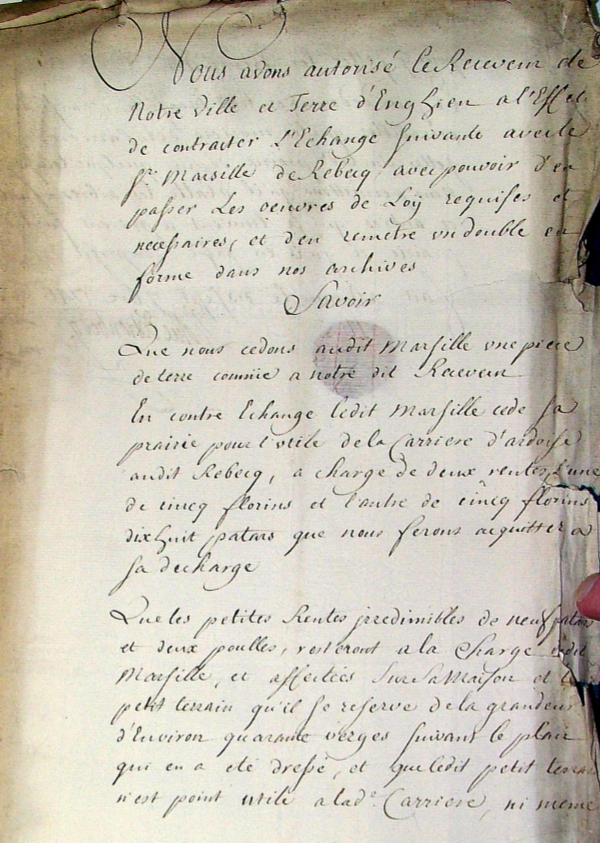 Nous avons autorisé le Receveur de
Notre ville et Terre d'Enghien a l'Effet
de contracter L'Echange suivante avec le
Sr. Marsille de Rebecq avec pouvoir d'en
passer Les oeuvres de Loÿ requises et
necessaires, et d'en remetre un double en
forme dans nos archives
Savoir
Que nous cedons audit Marsille une piece
de terre connüe a notre dit Receveur
En contre Echange ledit Marsille cede sa
prairie pour l'utile de la Carriere d'ardoise
audit Rebecq, a charge de deux rentes, L'une
de cincq florins et l'autre de cincq florins
dix huit patars que nous ferons acquitter a
sa decharge
Que les petites Rentes irredimibles de neuf patars
et deux poulles, resteront a la Charge
Marsille, et affectées Sur Sa Maison et
petit terrain qu'il se reserve de la grandeur
d'Environ quarante verges suivant le plan
qui en a eté dressé, et que ledit petit terrain
n'est point utile a lade. Carriere, ni meme